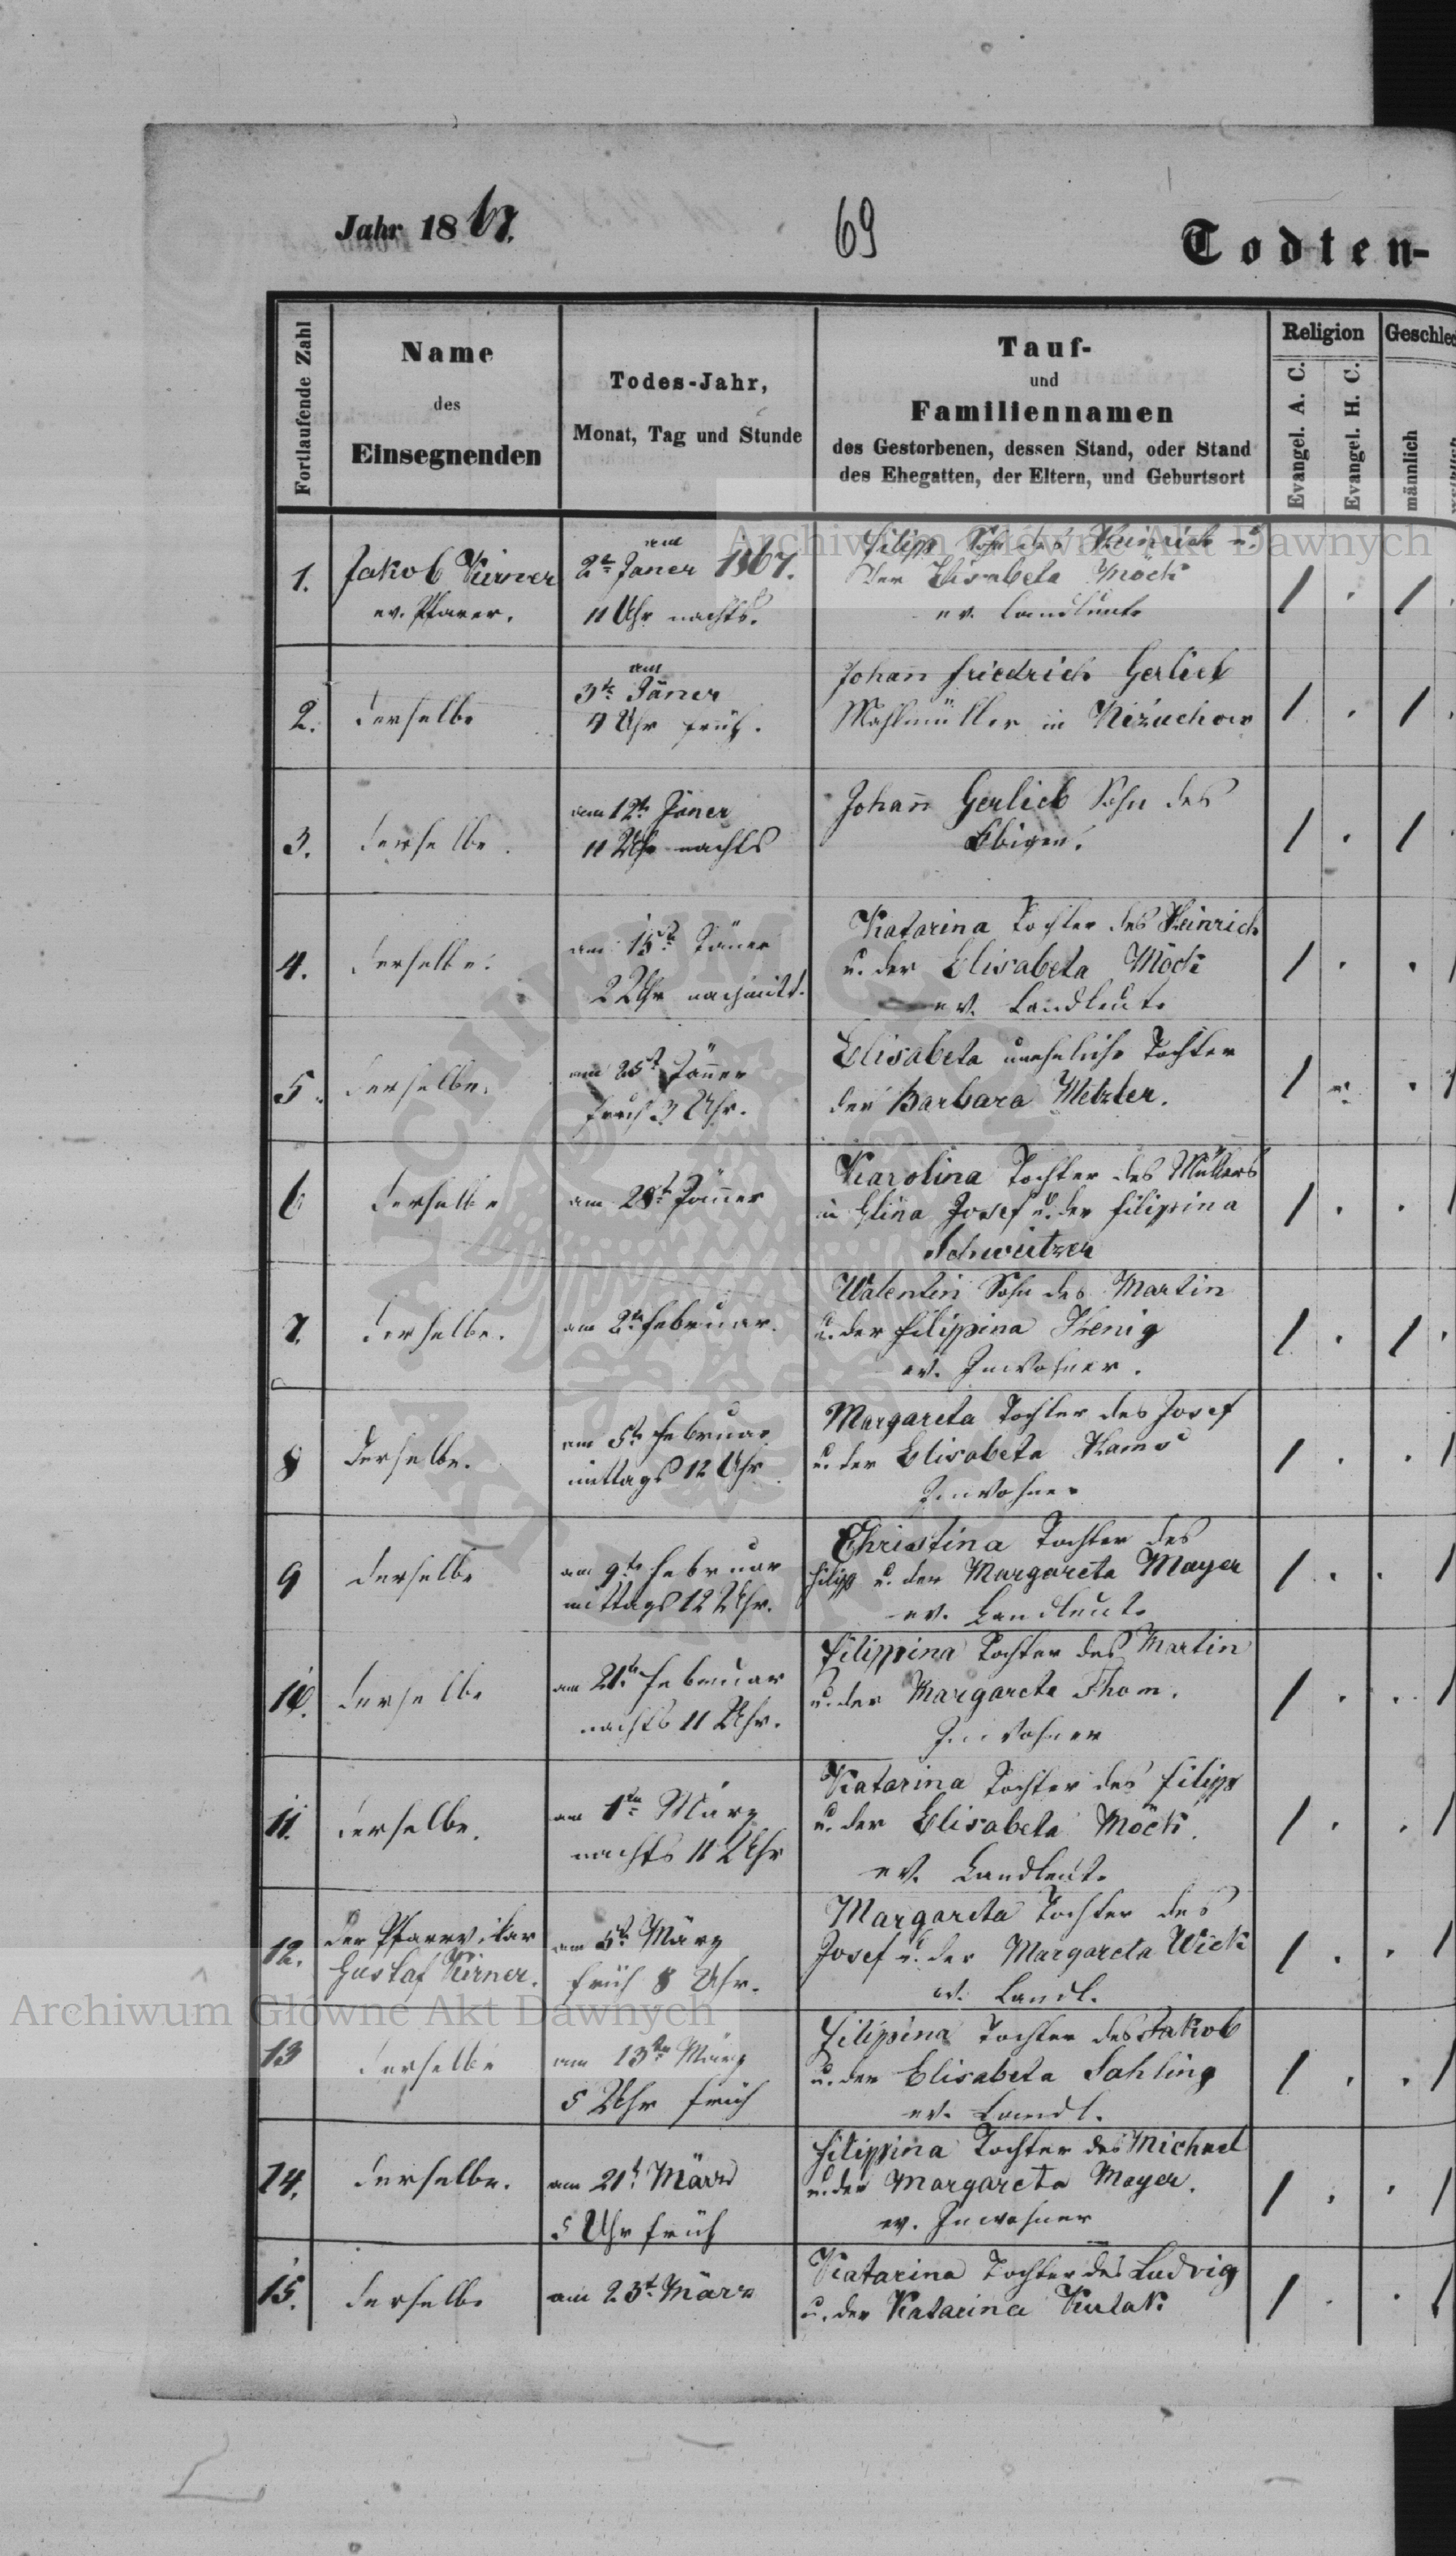 Jahr 1867.
69
Todten-
Fortlaufende Zahl
Name
des
Einsegnenden
Todes-Jahr,
Monat, Tag und Stunde
Tauf-
und
Familiennamen
des Gestorbenen, dessen Stand, oder Stand
des Ehegatten, der Eltern, und Geburtsort
Religion
Evangel. A. C.
Evangel. H. C.
Geschlec
männlich
1.
Jakob Kirner
ev. Pfarer.
am
2te Janer 1867.
11 Uhr nachts.
Filipp Sohn des Heinrich u.
der Elisabeta Möck
ev. Landleute
/ . / .
2.
derselbe
am
3te Jäner
4 Uhr früh.
Johann Friedrich Gerlieb
Mahlmüller in Niźuchow
/ . / .
3.
derselbe.
am 12te Jäner
11 Uhr nachts
Johann Gerlieb Sohn des
Obigen.
/ . / .
4.
derselbe.
am 15te Jäner
2 Uhr nachmitt.
Katarina Tochter des Heinrich
u. der Elisabeta Möck
ev. Landleute
/ . . /
5.
derselbe.
am 25t Jänner
früh 3 Uhr.
Elisabeta uneheliche Tochter
der Barbara Metzler.
/ . . /
6
derselbe
am 28t Jänner
Karolina Tochter des Müllers
in Glina Josef u. der Filippina
Schweitzer
/ . . /
7.
derselbe.
am 2te Februar.
Walentin Sohn des Martin
u. der Filippina Kenig
ev. Inwohner.
/ . / .
8
derselbe.
am 5te Februar
mittags 12 Uhr
Margareta Tochter des Josef
u. der Elisabeta
Inwohner
/ . . /
9
derselbe
am 9te Februar
mittags 12 Uhr.
Christina Tochter des
Filipp u. der Margareta Mayer
ev. Landleute
/ . . /
10.
derselbe
am 21te Februar
nachts 11 Uhr.
Filippina Tochter des Martin
u. der Margareta Thom.
Inwohner
/ . . /
11.
derselbe.
am 1ten März
nachts 11 Uhr
Katarina Tochter des Filipp
u. der Elisabeta Möck.
ev. Landleute
/ . . /
12.
der Pfarrvikar
Gustaf Kirner.
am 5t März
früh 8 Uhr.
Margareta Tochter des
Josef u. der Margareta Wick
ev. Landl.
/ . . /
13
derselbe
am 13ten März
5 Uhr früh
Filipina Tochter des Jakob
u. der Elisabeta Sahling
ev. Landl.
/ . . /
14.
derselbe.
am 21t März
5 Uhr früh
Filippina Tochter des Michael
u. der Margareta Mayer.
ev. Inwohner
/ . . /
15.
derselbe
am 23t März
Katarina Tochter des Ludvig
u. der Katarina Kulak
/ . . /
Archiwum Główne Akt Dawnych
Archiwum Główne Akt Dawnych
ARCHIWUM GŁÓWNE
AKT DAWNYCH